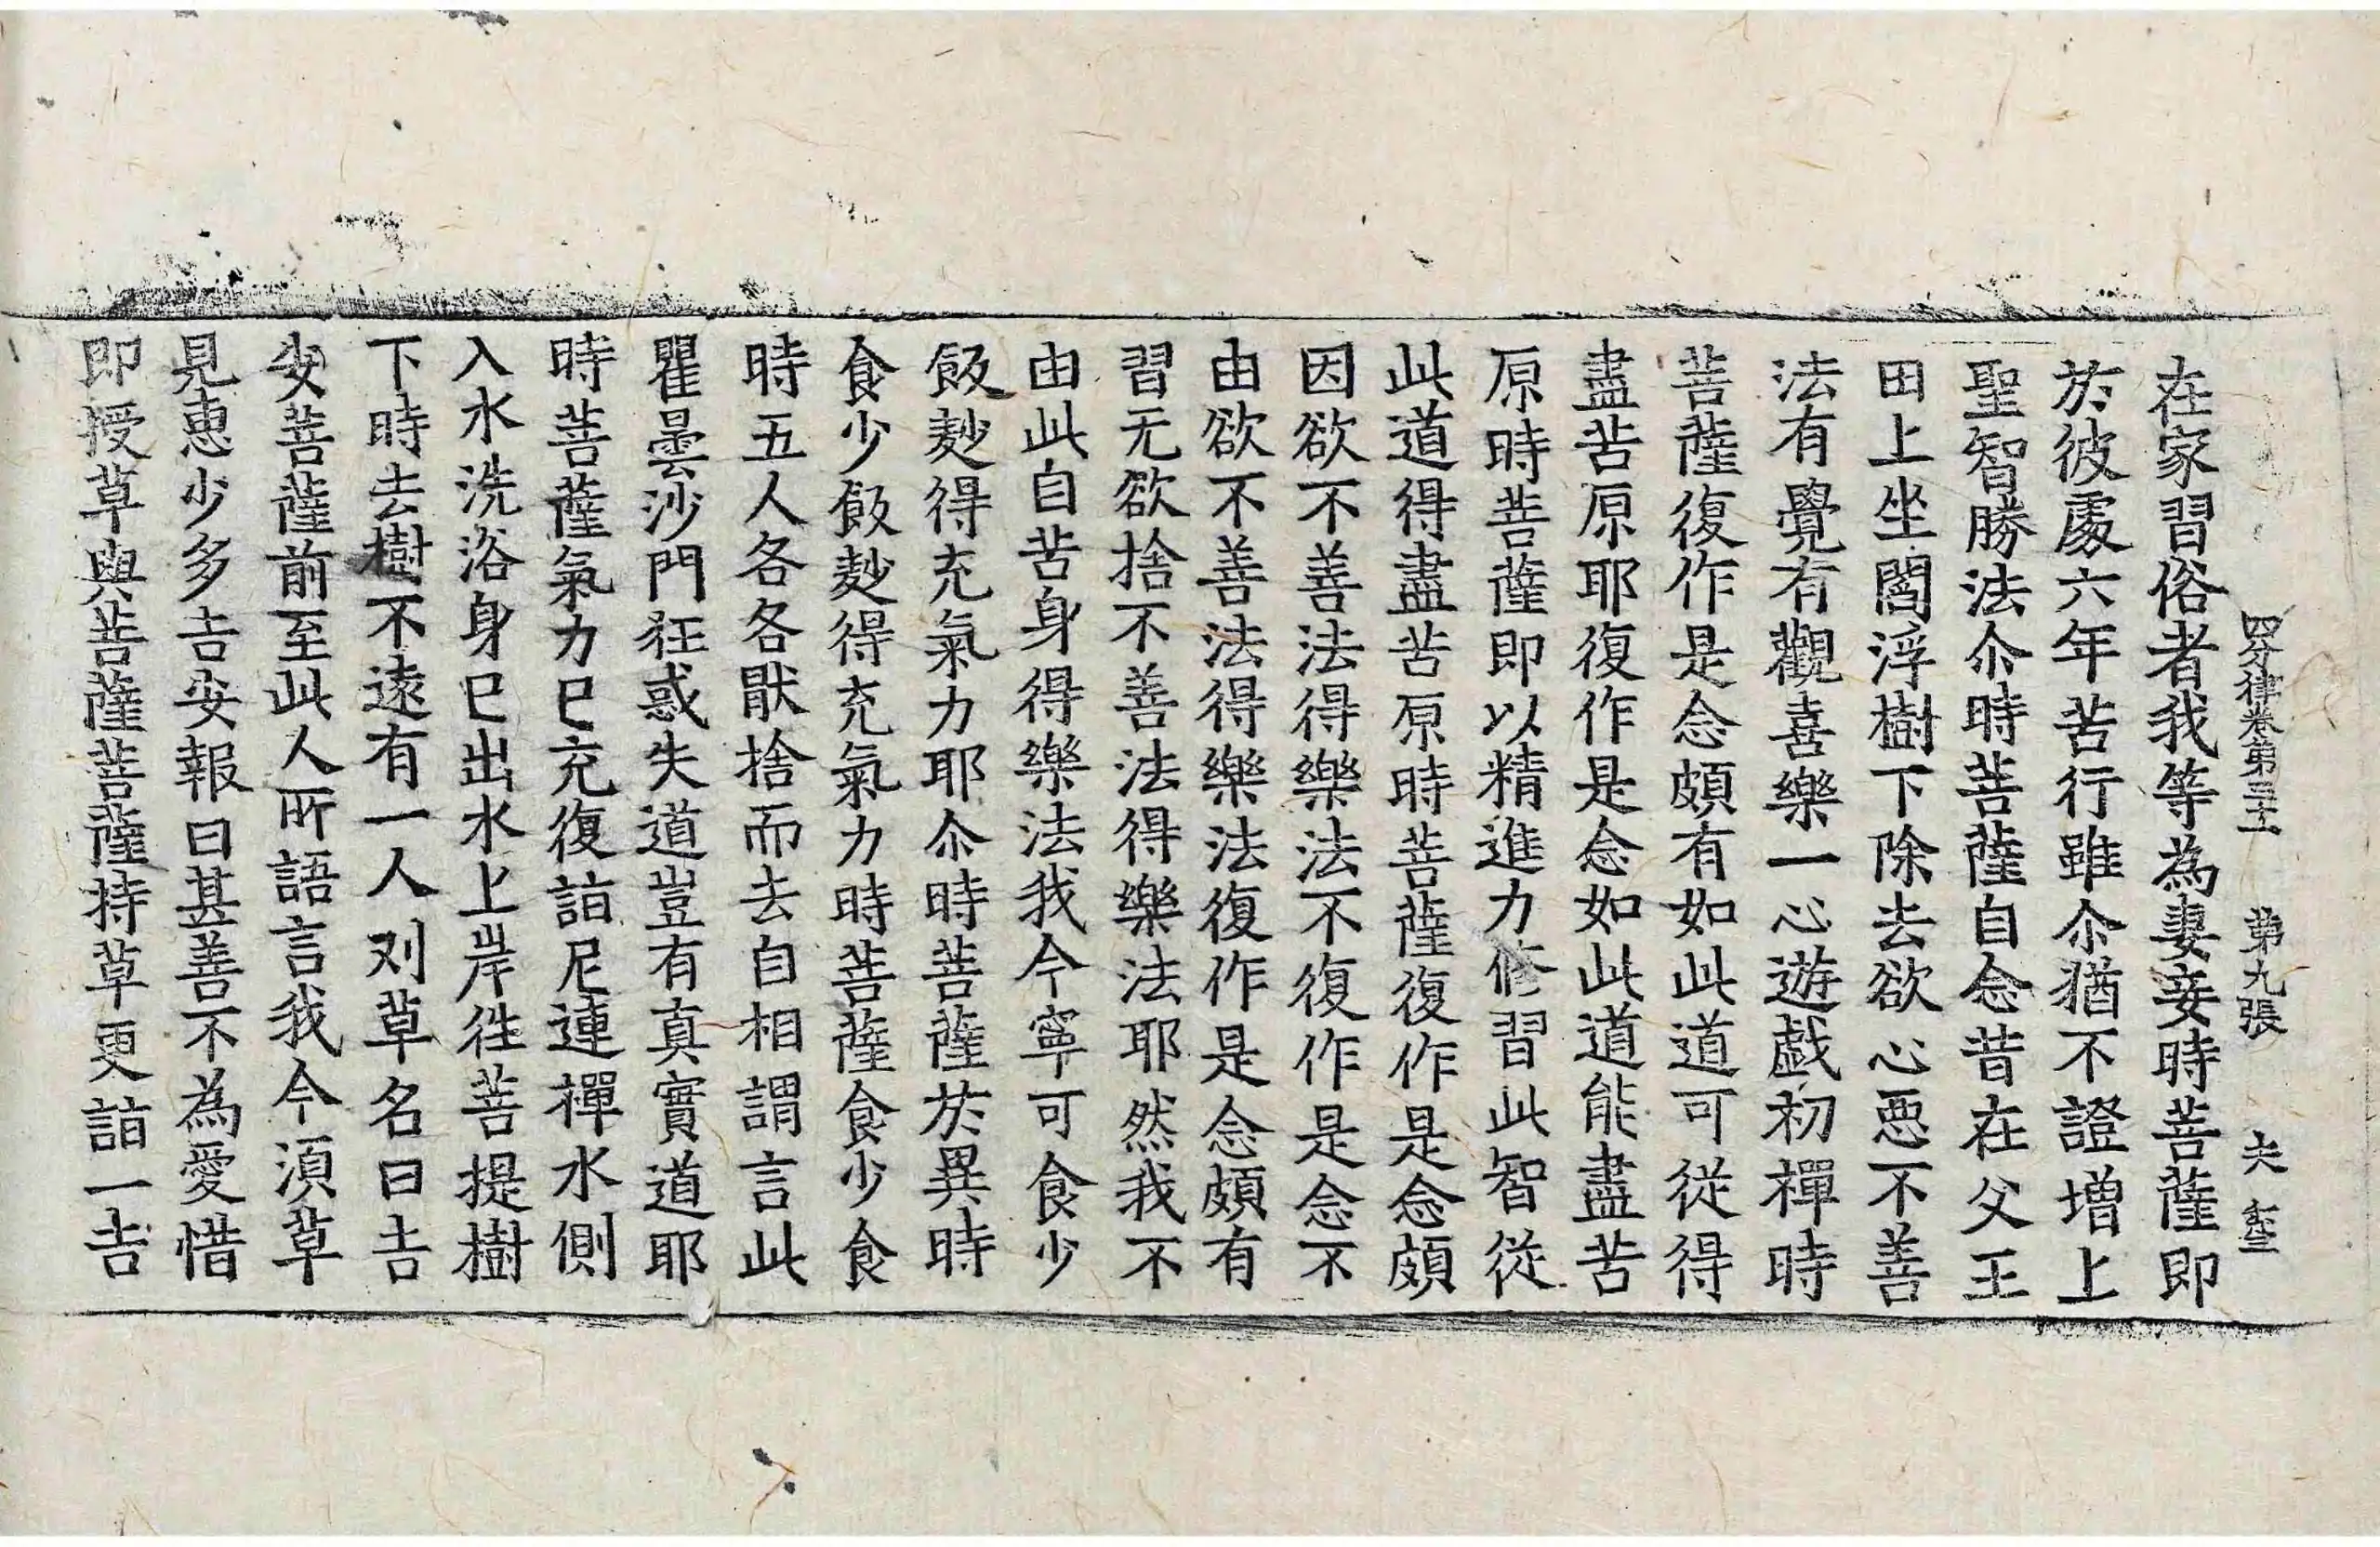 四分律卷第三十一 第九張 夫
在家習俗者我等為妻妾時菩薩即
於彼處六年苦行雖尒猶不證增上
聖智勝法尒時菩薩自念昔在父王
田上坐閻浮樹下除去欲心惡不善
法有覺有觀喜樂一心遊戲初禪時
菩薩復作是念頗有如此道可從得
盡苦原耶復作是念如此道能盡苦
原時菩薩即以精進力修習此智從
此道得盡苦原時菩薩復作是念頗
因欲不善法得樂法不復作是念不
由欲不善法得樂法復作是念頗有
習无欲捨不善法得樂法耶然我不
由此自苦身得樂法我今寧可食少
飯麨得充氣力耶尒時菩薩於異時
食少飯麨得充氣力時菩薩食少食
時五人各各猒捨而去自相謂言此
瞿曇沙門狂惑失道豈有真實道耶
時菩薩氣力已充復詣尼連禪水側
入水洗浴身已出水上岸往菩提樹
下時去樹不遠有一人刈草名曰吉
安菩薩前至此人所語言我今須草
見惠少多吉安報曰甚善不為愛惜
即授草與菩薩菩薩持草更詣一吉